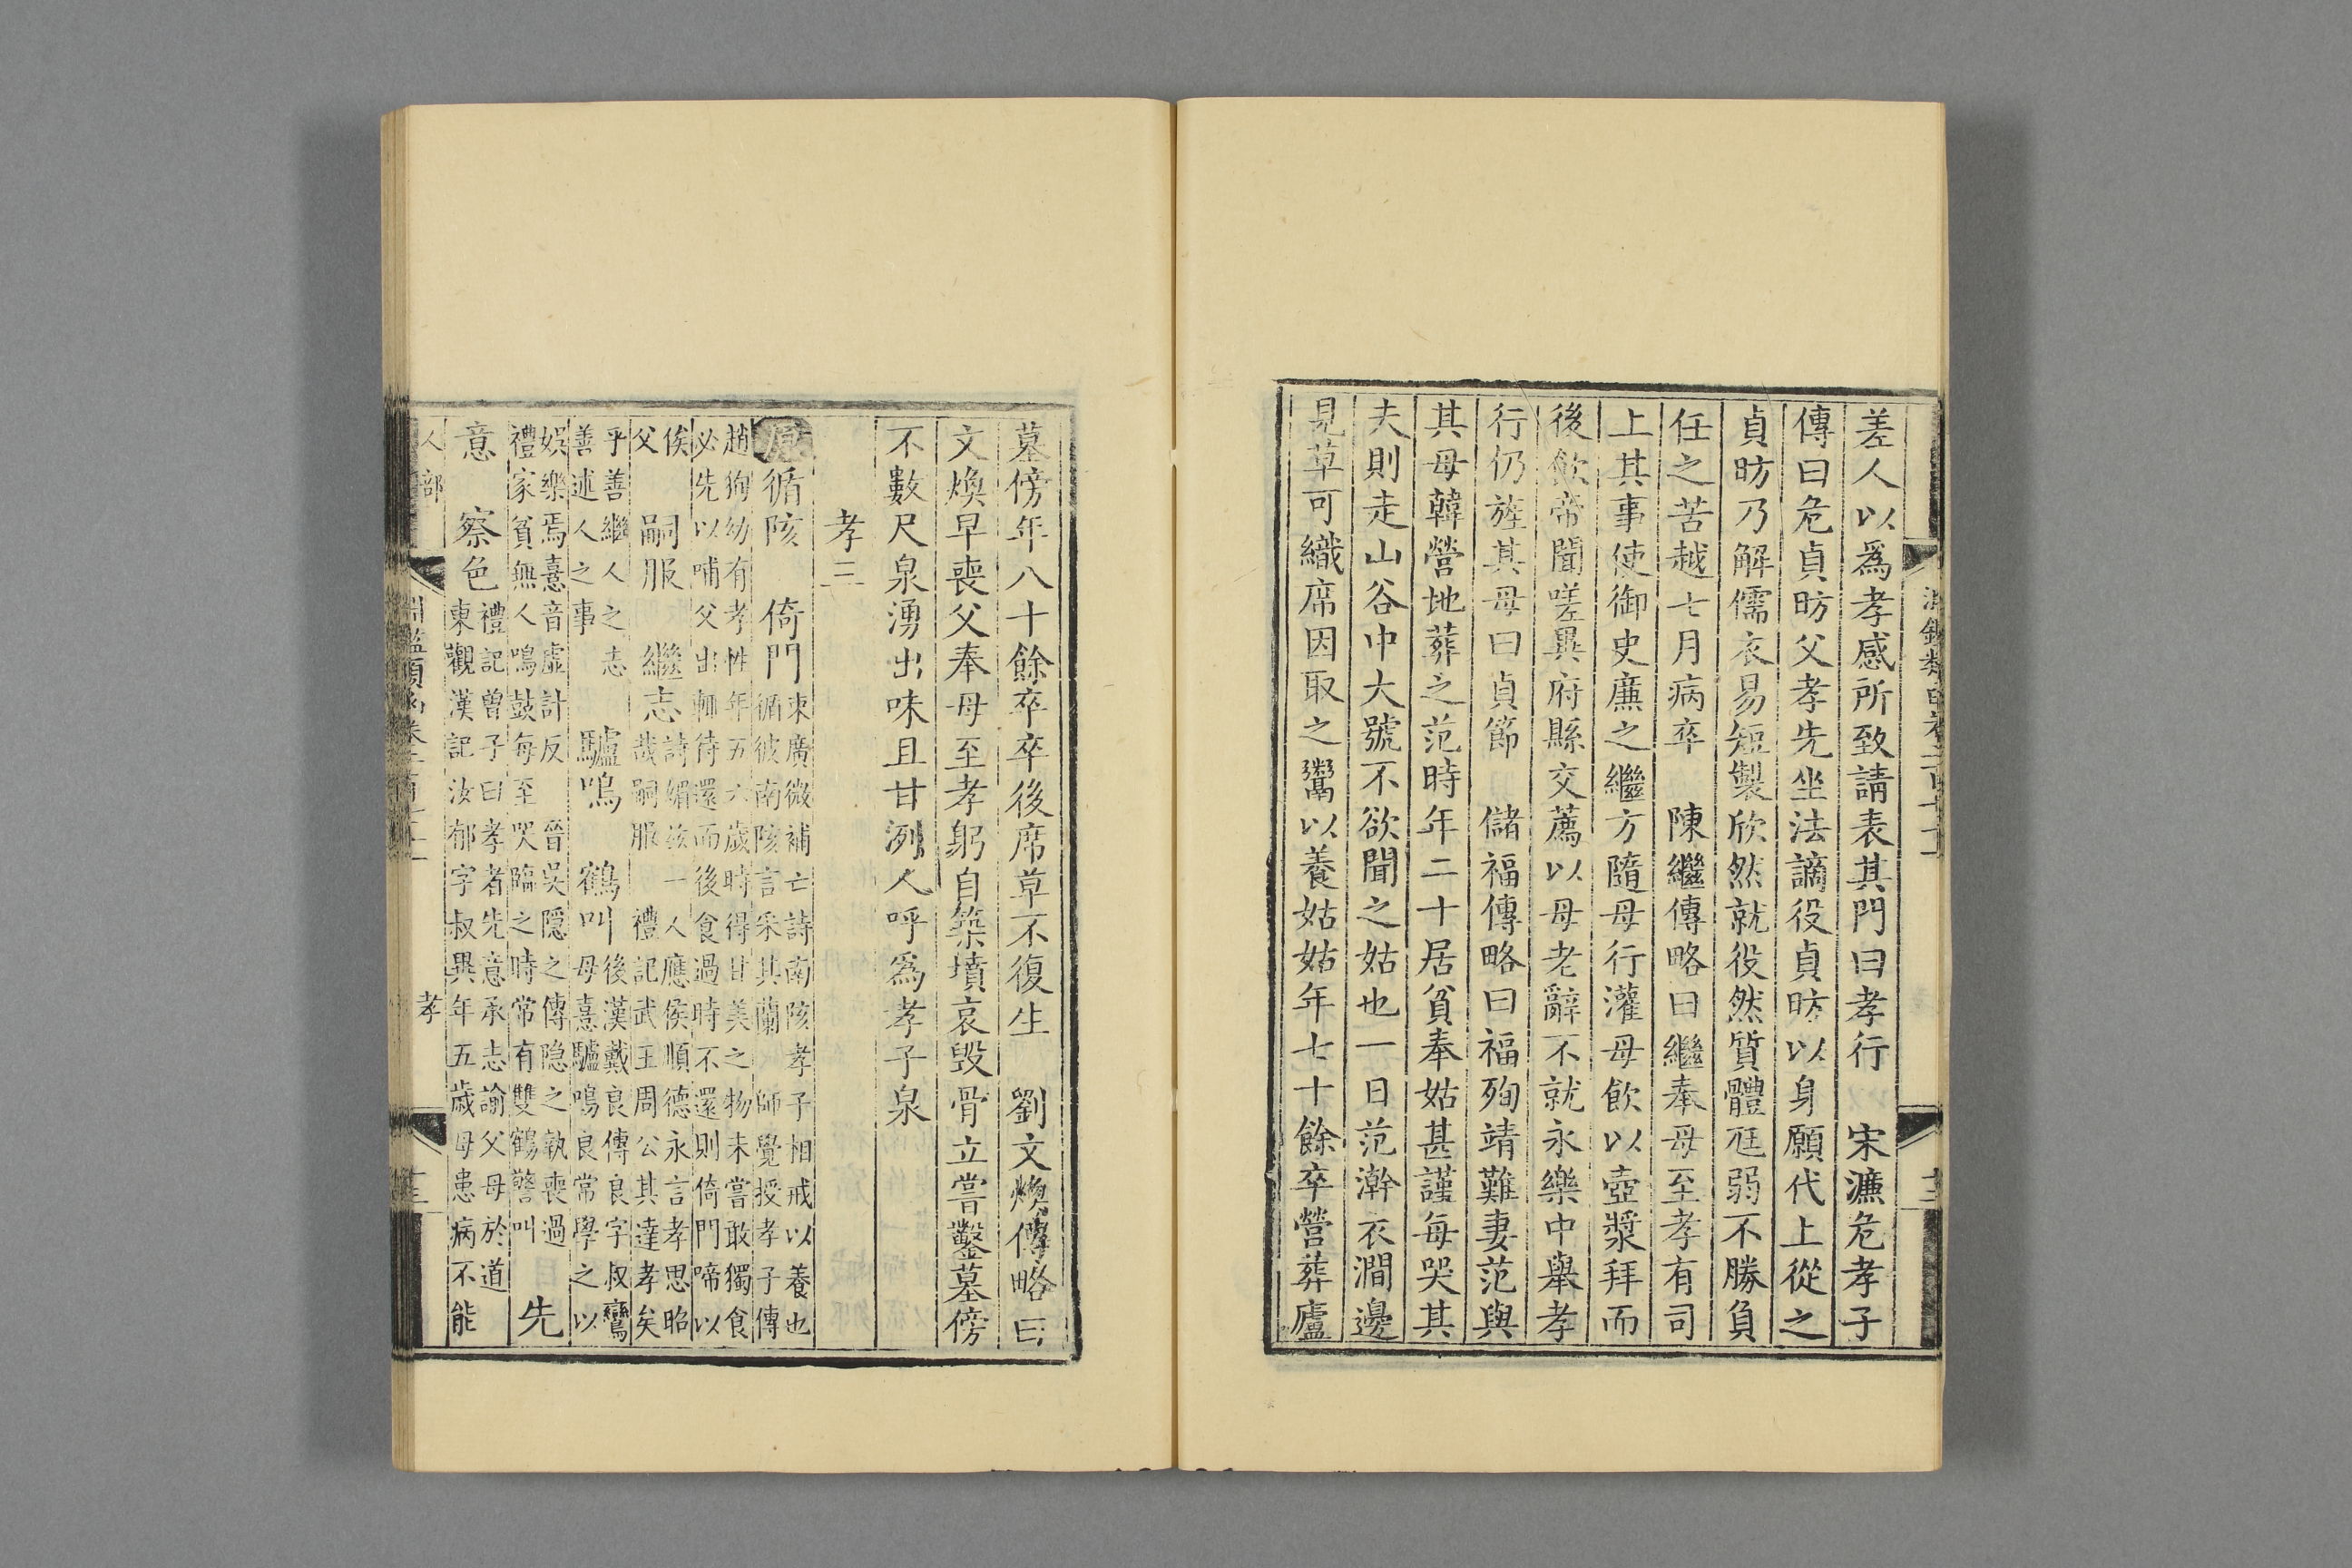 差人以爲孝感所致請表其門曰孝行　宋濂危孝子
傳曰危貞昉父孝先坐法謫役貞昉以身願代上從之
貞昉乃解儒衣易短製欣然就役然質體尫弱不勝負
任之苦越七月病卒　陳繼傳略曰繼奉母至孝有司
上其事使御史廉之繼方隨母行灌母飲以壺漿拜而
後飲帝聞嗟異府縣交薦以母老辭不就永樂中舉孝
行仍旌其母曰貞節　儲福傳略曰福殉靖難妻范與
其母韓營地葬之范時年二十居貧奉姑甚謹每哭其
夫則走山谷中大號不欲聞之姑也一日范澣衣澗邊
見草可織席因取之鬻以養姑姑年七十餘卒營葬廬
墓傍年八十餘卒卒後席草不復生　劉文煥傳略曰
文煥早喪父奉母至孝躬自築墳哀毀骨立嘗鑿墓傍
不數尺泉湧出味且甘洌人呼爲孝子泉
孝三
原循陔　倚門
束廣微補亡詩南陔孝子相戒以養也
循彼南陔言采其蘭　師覺授孝子傳
趙狥幼有孝性年五六歲時得甘美之物未嘗敢獨食
必先以哺父出輙待還而後食過時不還則倚門啼以
俟
父　嗣服　繼志
詩媚兹一人應侯順德永言孝思昭
哉嗣服　禮記武王周公其達孝矣
乎善繼人之志
善述人之事　驢鳴　鶴叫
後漢戴良傳良字叔鸞
母憙驢鳴良常學之以
娛樂焉憙音虛計反　晉吳隱之傳隱之執喪過
禮家貧無人鳴鼓每至哭臨之時常有雙鶴警叫　先
意　察色
禮記曽子曰孝者先意承志諭父母於道
東觀漢記汝郁字叔異年五歲母患病不能
人部　淵鑑類函卷二百七十一　孝　十三